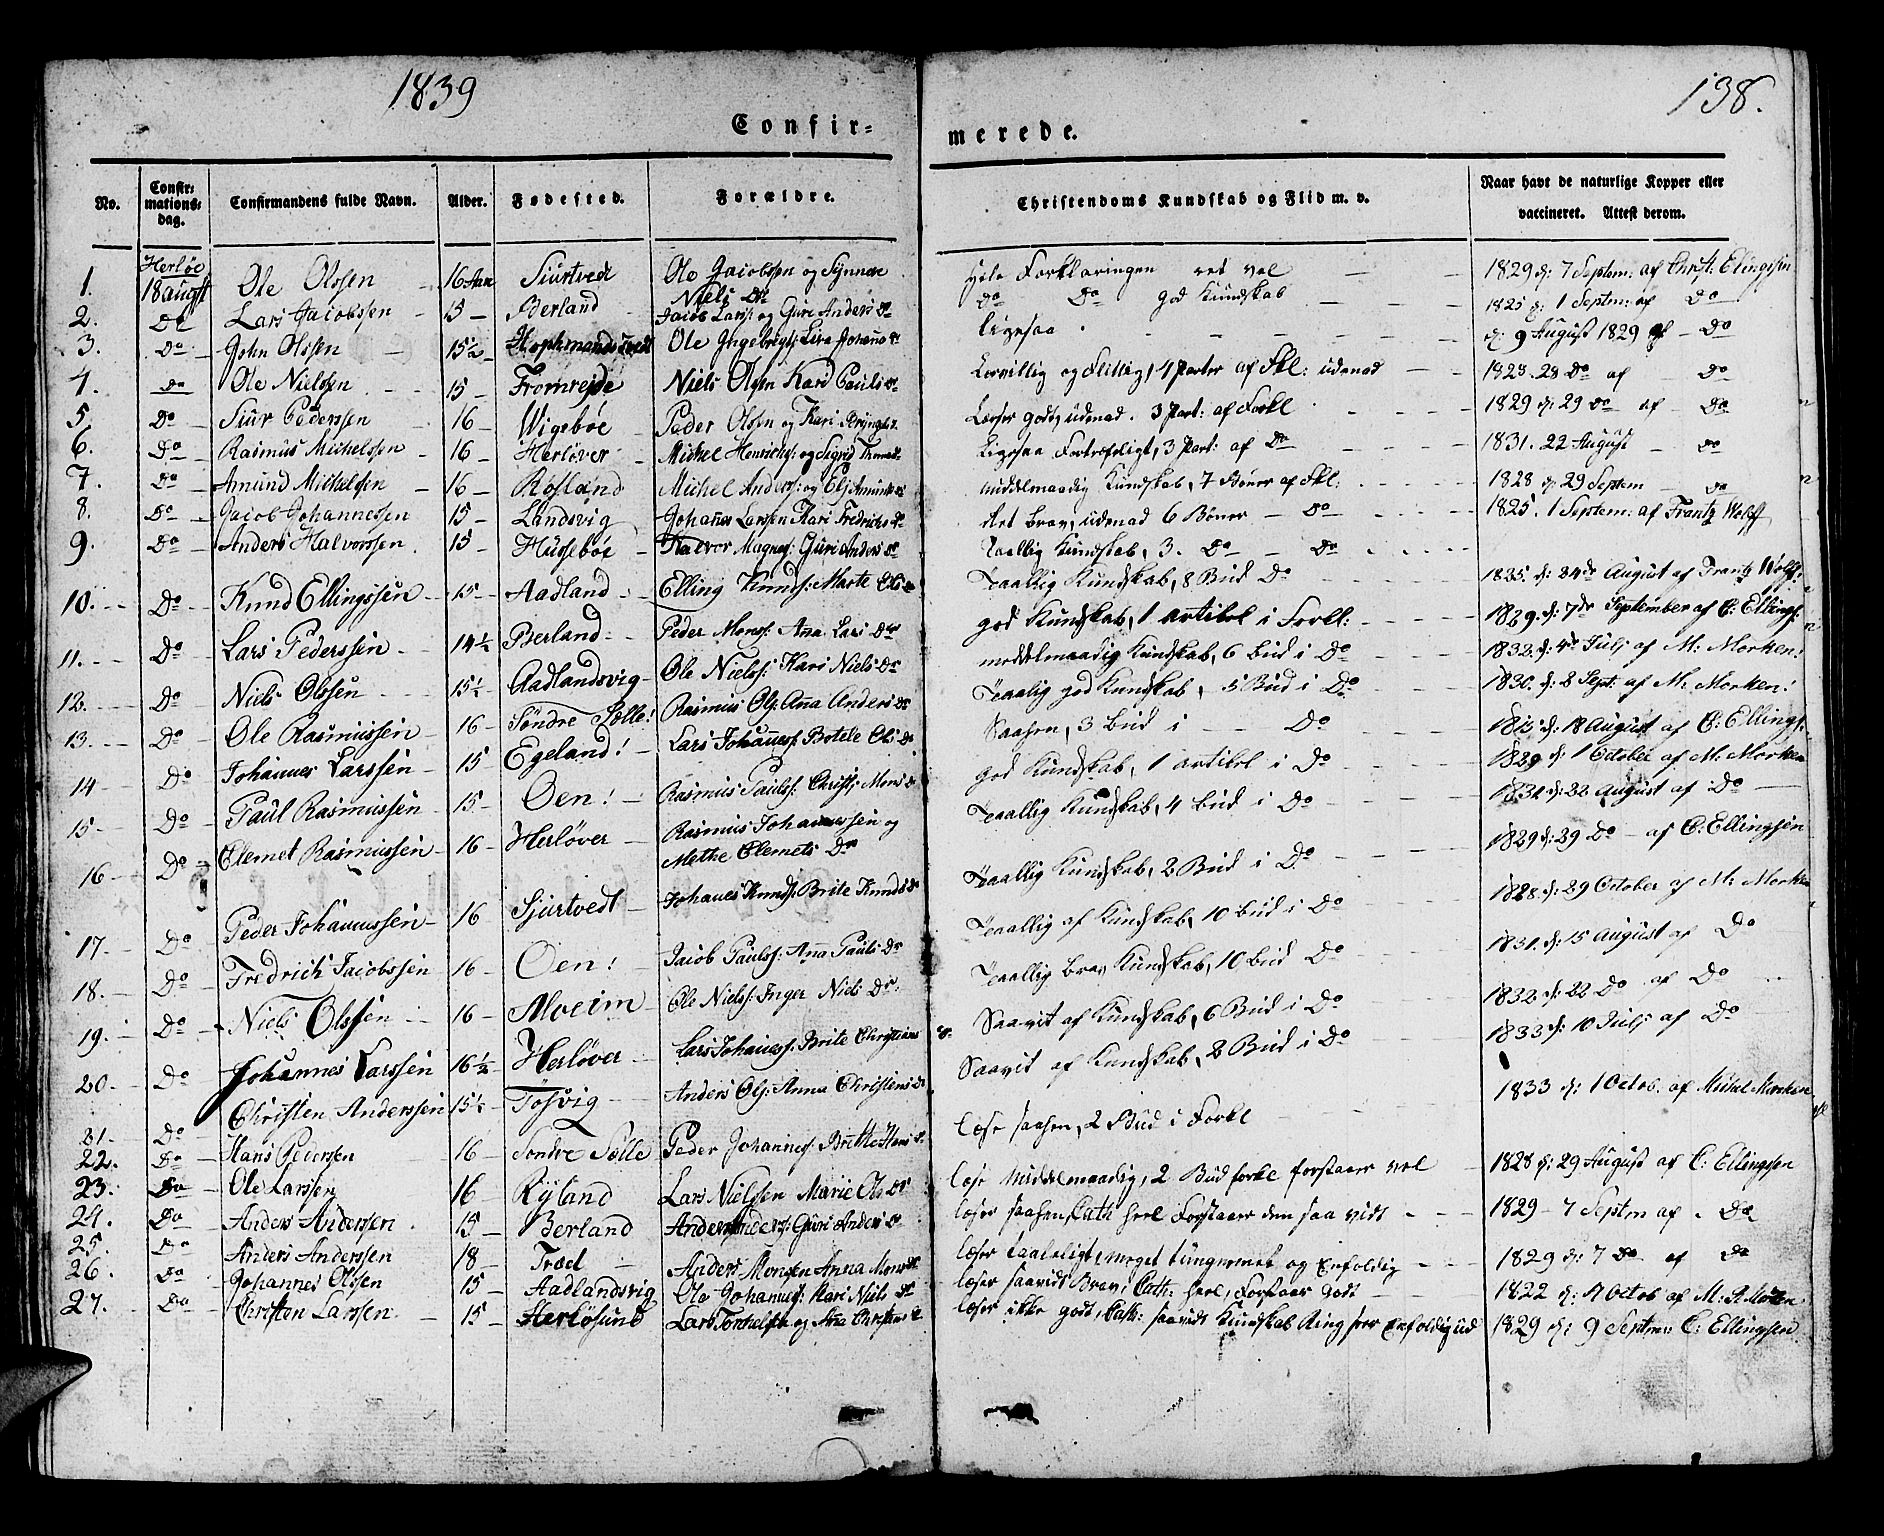 1839
138.
Confir-
merede.
No. Confirmationsdag. Confirmandens fulde Navn. Alder. Fødested. Forældre. Christendoms Kundskab og Flid m. v. Naar havt de naturlige Kopper eller vaccineret. Attest derom.
Herløe
1. 18 augst Ole Olssen 16 Aar Siurtvedt Ole Jacobssen og Synneve Niels Dr Hele Forklaringen ret vel 1829 d: 7 Septem: af Christ: Elingssen
2. Do Lars Jacobssen 15 Berland Jacob Lars: og Guri Anders Dr Do Do god Kundskab 1825 d: 1 Septm: af Do
3. Do John Olssen 15½ Ole Ingebregts: Johans Dr Ligesaa d: 9 August 1829 af Do
4. Do Ole Nielssen 15 Fromreide Niels Olsen Kari Pauls Dr Lærvillig og Flittig, 4 Parter af Fkl: udenad 1828. 28 Do af Do
5. Do Siur Pederssen 16 Wigebøe Peder Olsen og Kari Brynels: Læser godt, udenad. 3 Part: af Forkl 1829 d: 29 Do af Do
6. Do Rasmus Michelssen 16 Herløver Michel Henrichs: og Sigrid Ligesaa Fortræfeligt, 3 Part: af Do 1831. 22 August Do
7. Do Amund Michelssen 16 Rosland Michel Anders: og Elj Amunds Dr middelmaadig Kundskab, 7 Bøner af Fkl: 1828 d: 29 Septem Do
8. Do Jacob Johannessen 15 Landsvig Johañes Larsen Kari Fredrichs Dr ret brav, udenad 6 Bøner Do 1825. 1 Septem: af Frantz Wolff
9. Do Anders Halvorssen 15 Hussebøe Halvor Magnes: Guri Anders Dr Taallig Kundskab, 3. Do Do
10. Do Knud Ellingssen 15 Aadland Elling Knuds: Marte Ols Dr Taallig Kundskab, 8 Bud Do 1825. d: 24de August af Frantz Wolff:
11. Do Lars Pederssen 14½ Berland Peder Mons: Ana Lars Dr god Kundskab, 1 artikel i Forkl: 1829. d: 7de September af C: Ellings:
12. Do Niels Olssen 15½ Aadlandsvig Ole Niels: Kari Niels Dr meddelmaadig Kundskab, 6 bud i Do 1832. d: 4de Julj af M: Morken!
13. Do Ole Rasmussen 16 Söndre Sølle! Rasmus Ols: Ana Anders Dr Taalig god Kundskab, 5 Bud i Do 1830. d: 8 Sept: af M: Morken!
14 Do Johannes Larssen 15 Egeland! Lars Johanes: Botele Ols Dr Saasen, 3 bud i Do d: 18 August af C: Ellings:
15 Do Paul Rasmussen 15 Oen! Rasmus Pauls: Christj Mons Dr god Kundskab, 1 artikel i Do 1829 d: 1 October af M: Morken
16 Do Clemet Rasmussen 16 Herløver Rasmus Johannessen og Methe Clemets Dr Taallig Kundskab, 4 bud i Do 1831. d: 22 August af Do
17. Do Peder Johannssen 16 Sjurtvedt Johanes Knuds: Brite Knuds Dr Taallig Kundskab, 2 Bud i Do 1829 d: 29 Do af C: Ellingsen
18. Do Fredrich Jacobssen 16 Oen! Jacob Pauls: Ana Pauls Dr Taallig af Kundskab, 10 bud i Do 1828. d: 29 October af M: Morken
19. Do Niels Olssen 16 Alveim Ole Niels: Inger Niels Dr: Taallig brav Kundskab, 10 bud i Do 1831. d: 15 August af Do
20 Do Johannes Larssen 16½ Herløver Lars Johanes: Brite Christians Dr. Saavit af Kundskab, 6 Bud i Do 1832 d: 22 Do af Do
21. Do Christen Anderssen 15½ Tösvig Anders Ols: Anna Christens Dr Saavit af Kundskab, 2 Bud i Do 1833 d: 10 Julj af Do
22. Do Hans Pedersen 16 Sondre Sølle Peder Johannes: Britte Hans Dr læse saasen, 2 Bud i Forkl 1833 d: 1 Octob. af Michel Morken
23. Do Ole Larssen 16 Ryland Lars Nielsen Marie Ols Dr læse Middelmaadig, 2 Bud forkl forstaar vel 1828 d: 29 August af C: Ellingsen
24. Do Anders Andersen 15 Berland Anders Anders: Guri Anders Dr læser saasen, Cath heel Forstaaer den saa vidt 1829 7 Septm af Do
25. Do Anders Anderssen 18 Træd Anders Monsen Anna Mons Dr læser taaleligt, meget tungnemet og Enfoldig 1829 d: 7 Do af Do
26. Do Johannes Olssen 15 Aadlandsvig Ole Johannes: Kari Niels Dr læser saavidt Brav, Cath: heel, Forstaar godt 1822 d: 1 Octob af M: Morken
27. Do Christen Larsen 15 Herlösund Lars og Aña Christens Dr læser ikke godt, Cath: saavidt Kundskab Ring Enfoldig ud 1829 d: 9 Septm: C: Ellingsen